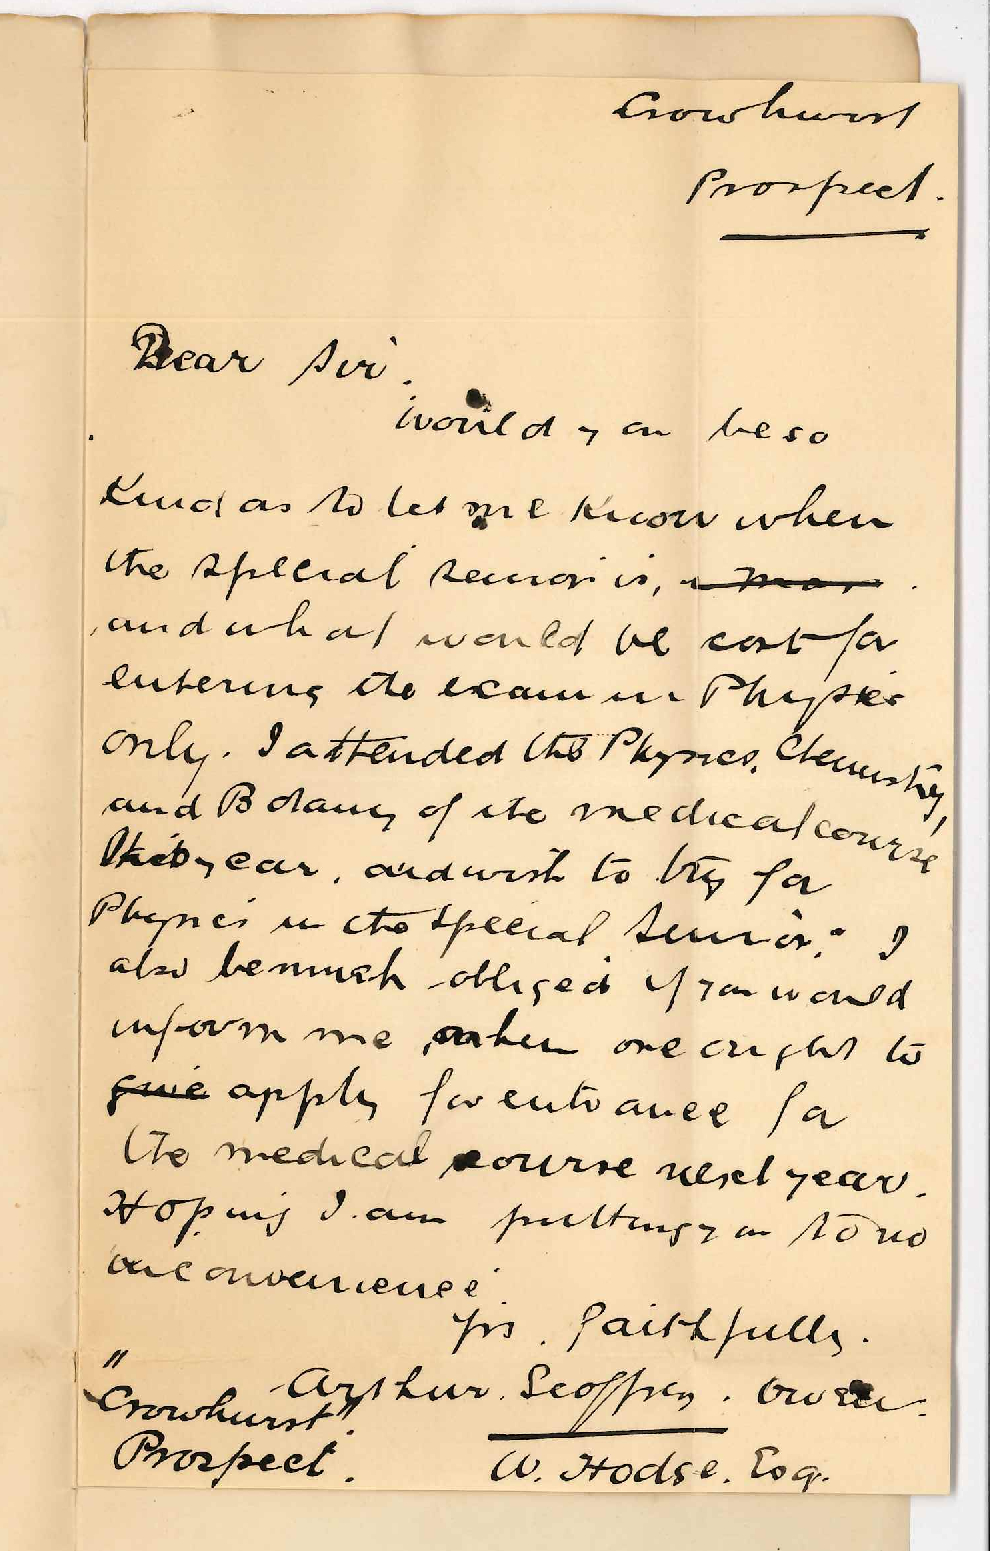 Crowhurst
Prospect.
Dear Sir.
Would you be so
Kind as to let me Know when
the special senior is,
and what would be cost for
entering the exam in Physics
only. I attended the Physics, Chemistry,
and Botany of the medical course
this year, and wish to try for
Physics in the special Senior. I
also be much obliged if you would
inform me when one ought to
give apply for entrance for
the medical course next year.
Hoping I am putting you to no
inconvenience
Yrs. faithfully.
Arthur. Geoffrey. Owen.
"Crowhurst".
Prospect.
W. Hodge. Esq.